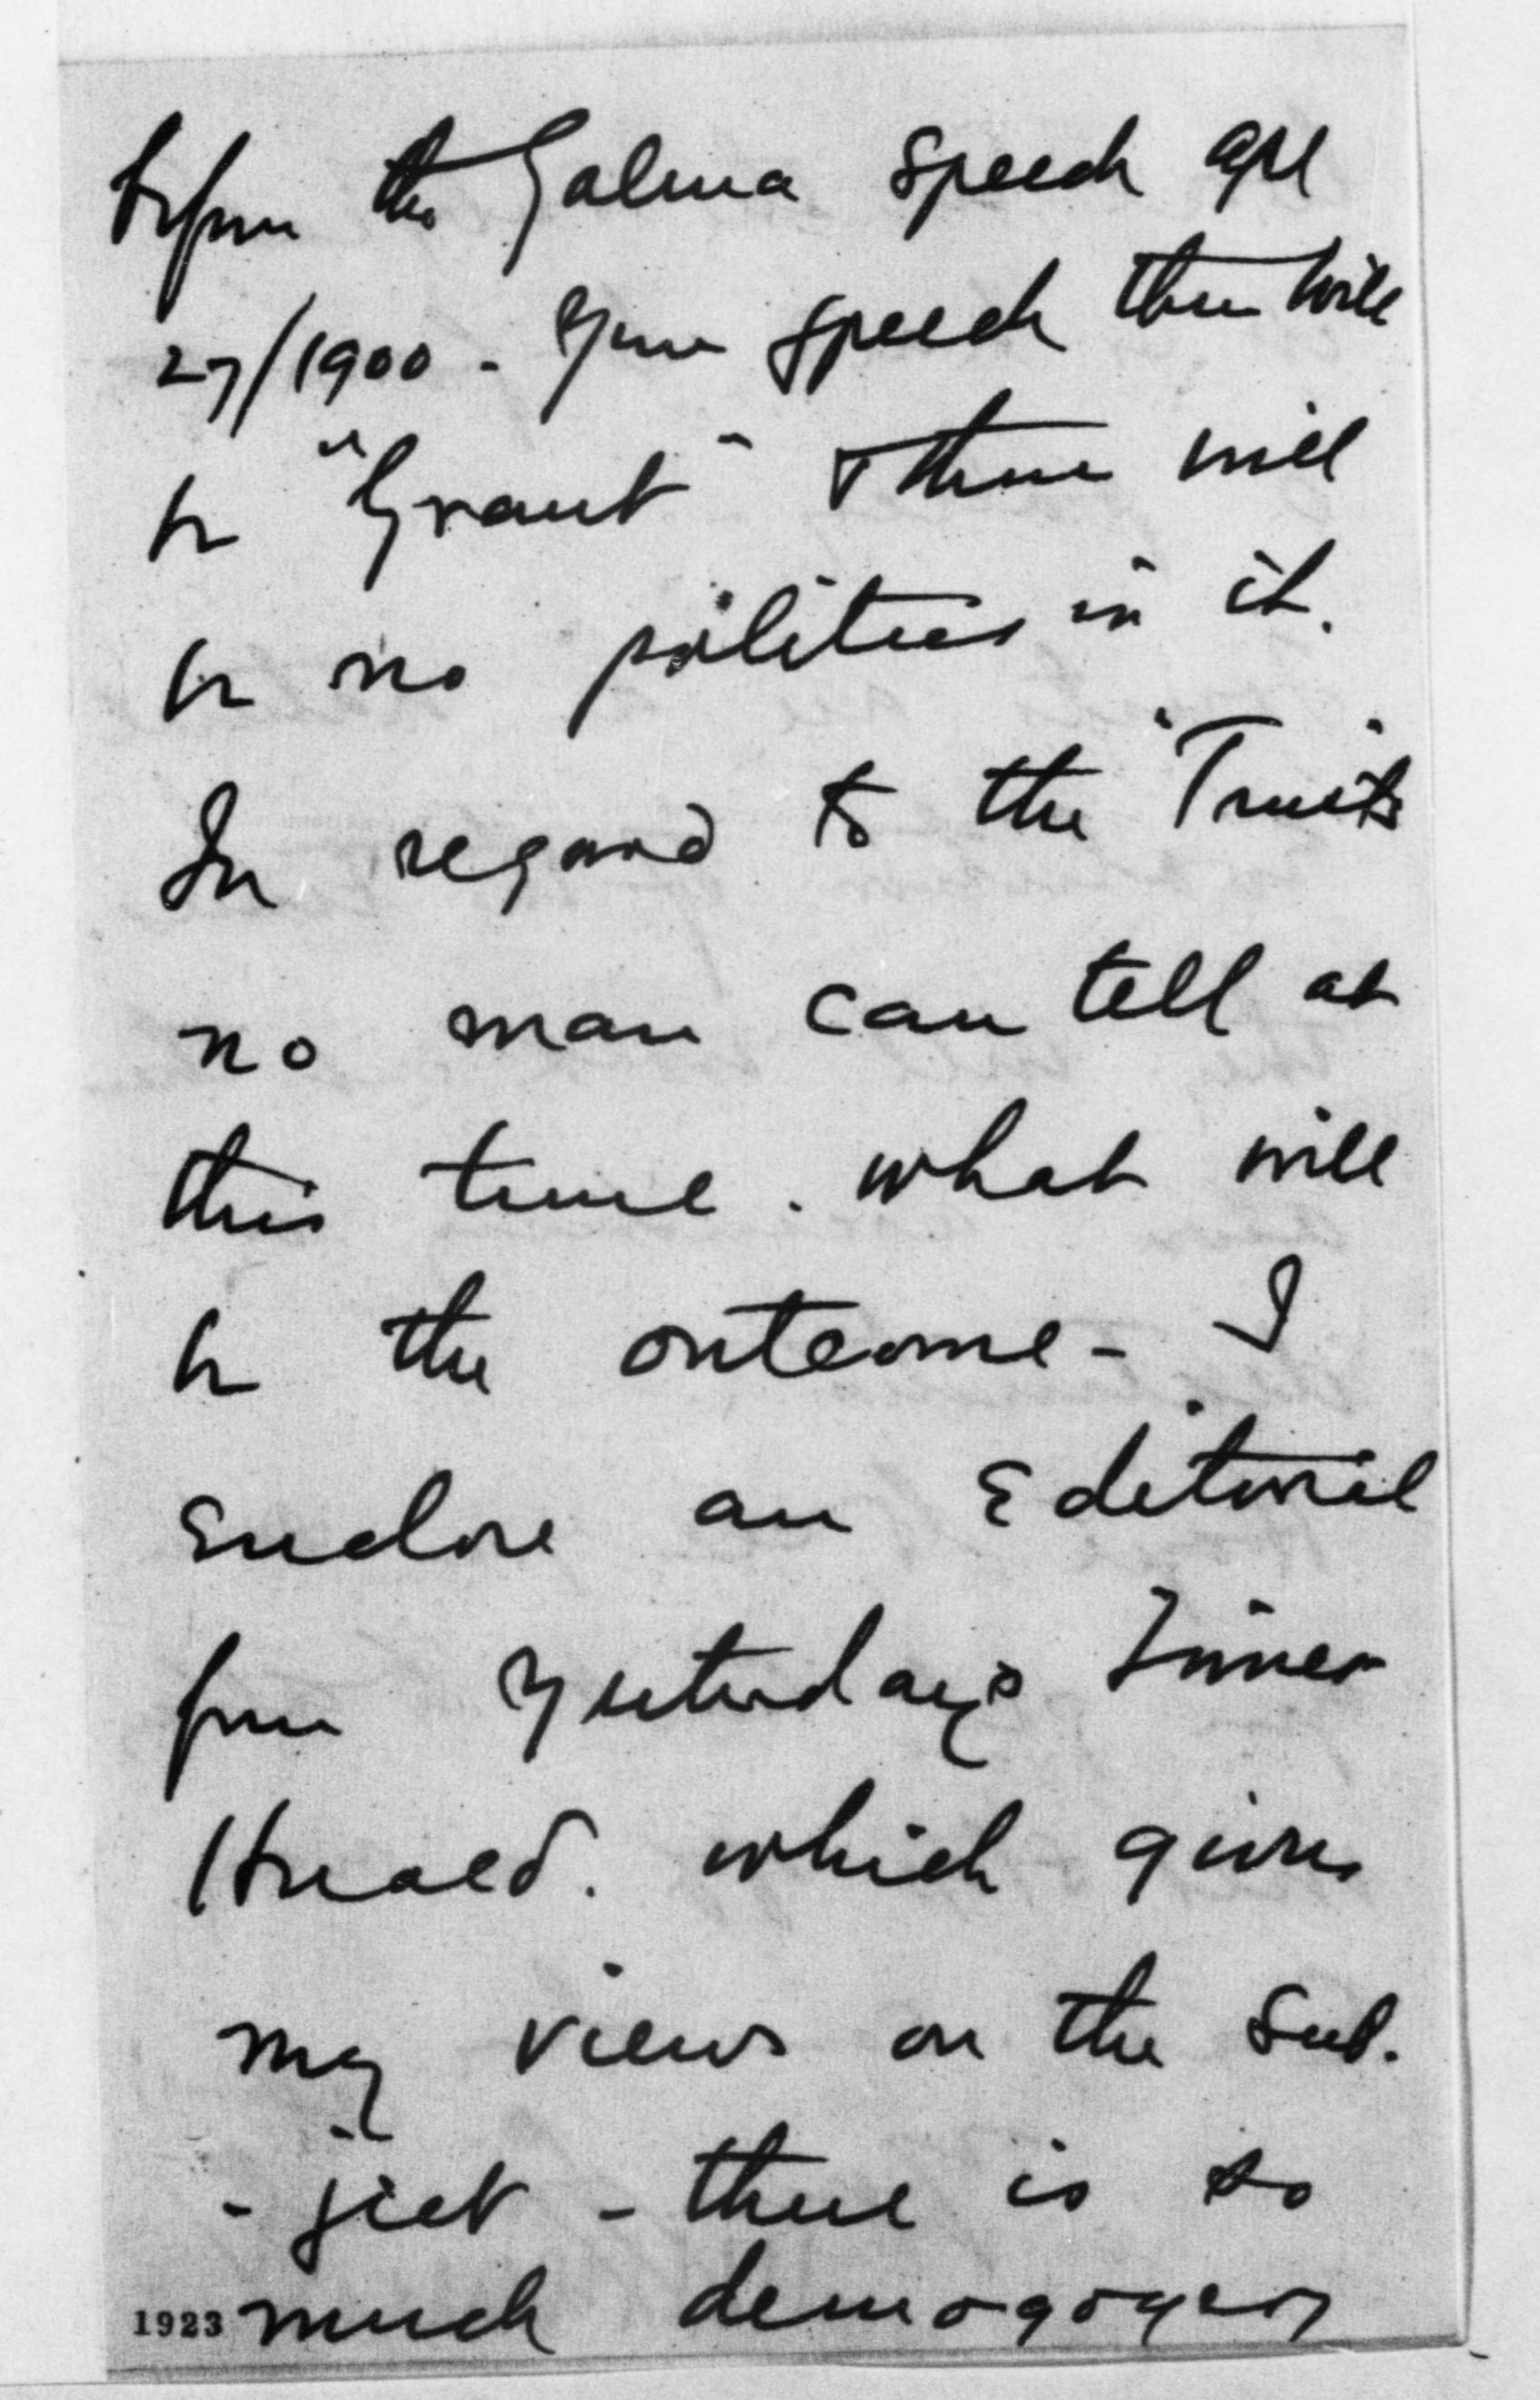 before the Galena speech apl
27/1900 - Your speech there will
be "Grant" & there will
be no politics in it.
In regard to the "Trusts"
no man can tell at
this time. what will
be the outcome - I
Enclose an Editorial
from Yesterdays Times
Herald. which gives
my views on the Sub.
- ject - there is so
much demogogery
1923